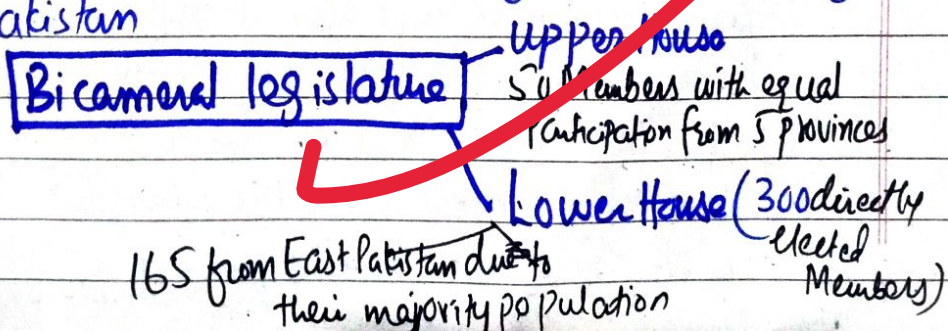 akistan
Upper House
Bicameral legislature
50 Members with equal
participation from 5 provinces
Lower House (300 directly
elected
Members)
165 from East Pakistan due to
their majority population